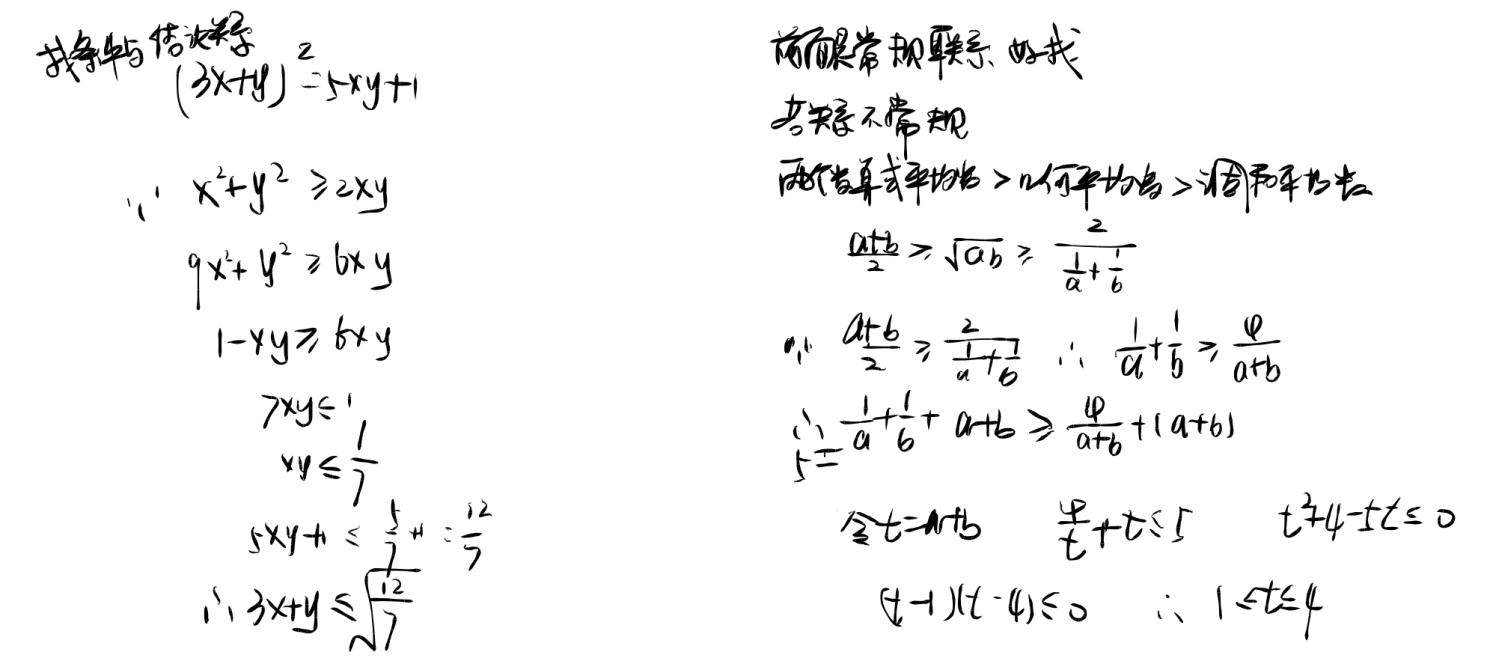 找条件与结论关系
(3x+y)²=5xy+1
∵ x²+y²≥2xy
9x²+y²≥6xy
1-xy≥6xy
7xy≤1
xy≤1/7
5xy+1≤5/7+1=12/7
∴ 3x+y≤√(12/7)
前面是常规联系、好找
若关系不常规
两个数算式平均数>几何平均数>调和平均数
(a+b)/2≥√ab≥2/(1/a+1/b)
∵ (a+b)/2≥2/(1/a+1/b) ∴ 1/a+1/b≥4/(a+b)
∴ 1/a+1/b+a+b≥4/(a+b)+(a+b)
5=
令t=a+b 4/t+t≤5 t²+4-5t≤0
(t-1)(t-4)≤0 ∴ 1≤t≤4